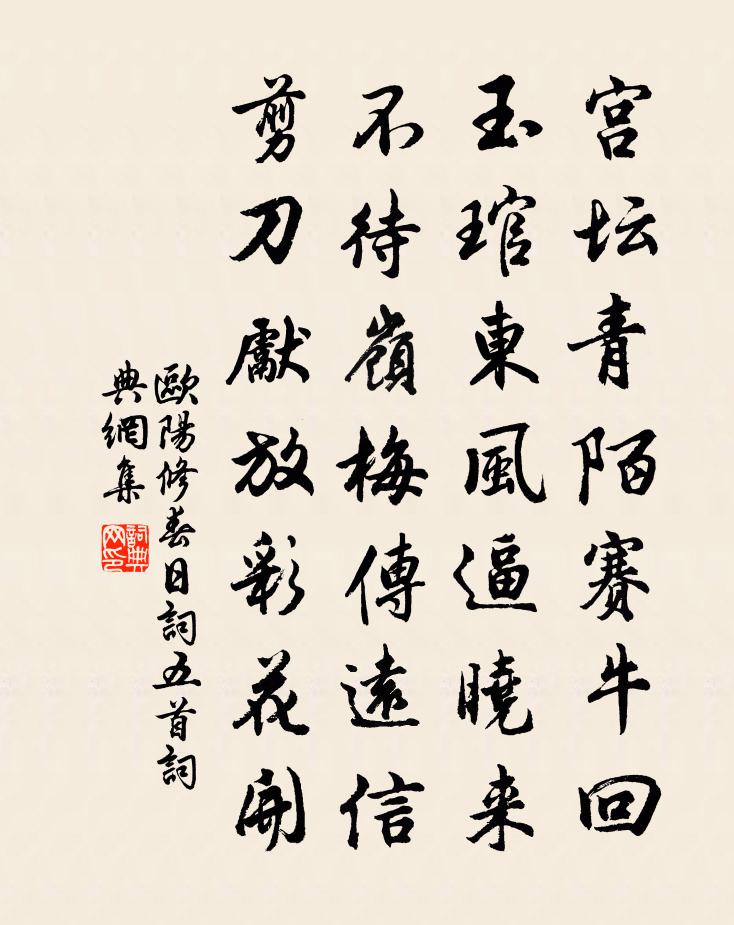 宫坛青陌赛牛回
玉琯東風逼曉来
不待嶺梅傳遠信
剪刀獻放彩花開
歐陽修春日詞五首詞
典網集
詞典
网印